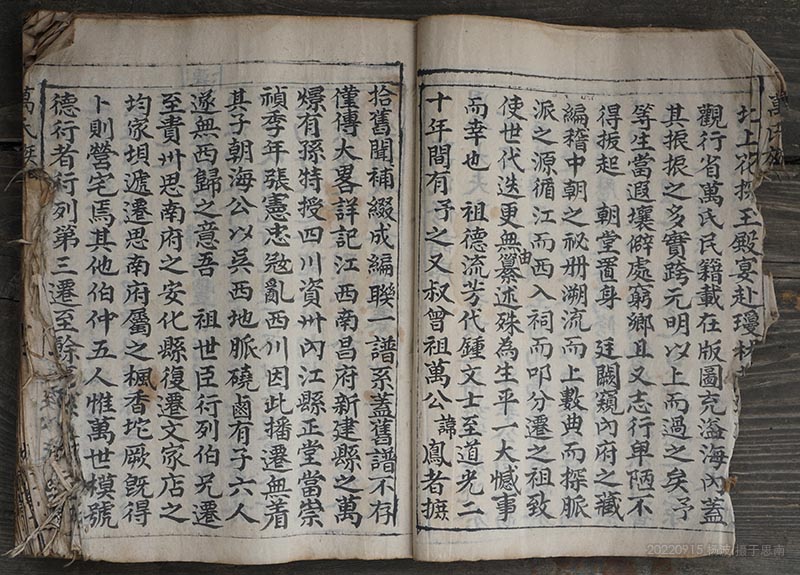 萬氏族
上
王殿宴赴瓊林
觀行省萬氏民籍載在版圖充溢海內蓋
其振振之多實跨元明以上而過之矣予
等生當遐壤僻處窮鄉且又志行卑陋不
得拔起 朝堂置身 廷闕窺內府之藏
編稽中朝之祕册溯流而上數典而探脈
派之源循江而西入祠而叩分遷之祖致
使世代迭更無由纂述殊為生平一大憾事
而幸也 祖德流芳代鍾文士至道光二
十年間有予之又叔曾祖萬公諱鳳者摭
拾舊聞補綴成編聯一譜系蓋舊譜不存
僅傳大畧詳記江西南昌府新建縣之萬
爆有孫特授四川資州內江縣正堂當崇
禎季年張憲忠寇亂西川因此播遷無着
其子朝海公以吳西地脈磽鹵有子六人
遂無西歸之意吾 祖世臣行列伯兄遷
至貴州思南府之安化縣復遷文家店之
均家垻遞遷思南府屬之楓香坨厥旣得
卜則營宅焉其他伯仲五人惟萬世模號
德行者行列第三遷至餘
萬氏族
20220915 摄于思南